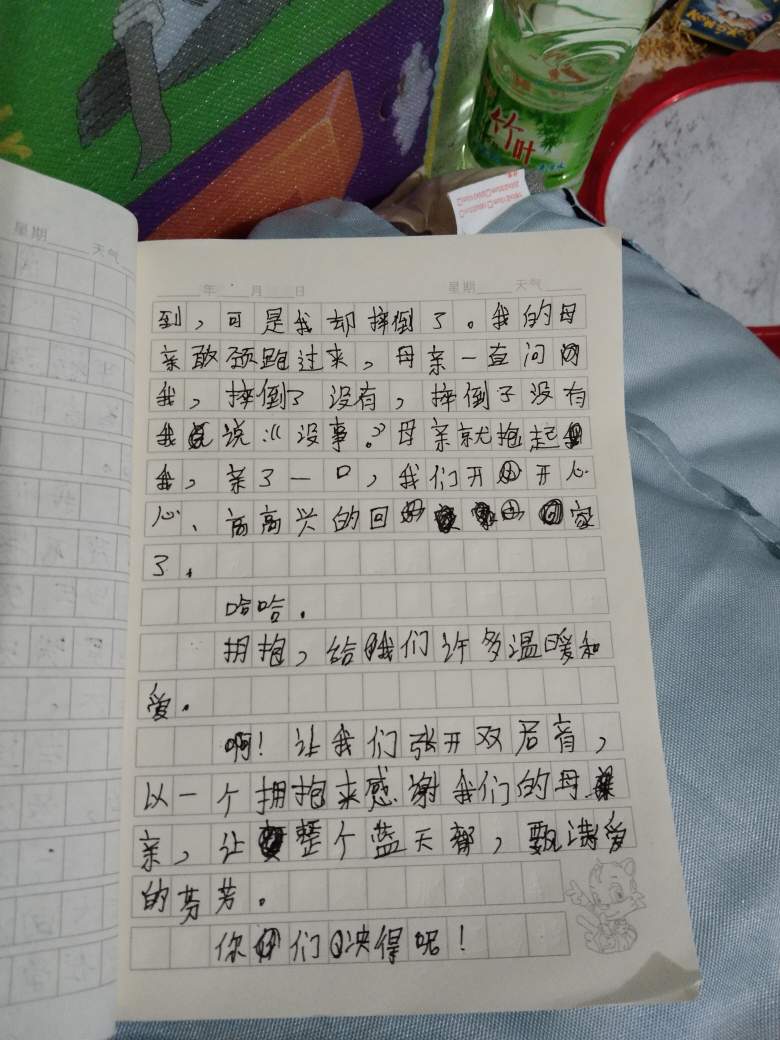 竹叶
星期 天气
年 月 日 星期 天气
到，可是我却摔倒了。我的母
亲敢颈跑过来，母亲一直问
我，摔倒了没有，摔倒了没有
我说“没事。”母亲就抱起
我，亲了一口，我们开开心
心、高高兴的回家
了.
哈哈.
拥抱，给我们许多温暖和
爱.
啊！让我们张开双肩膏，
以一个拥抱来感谢我们的母
亲，让整个蓝天都，甄满爱
的芬芳。
你们决得呢！